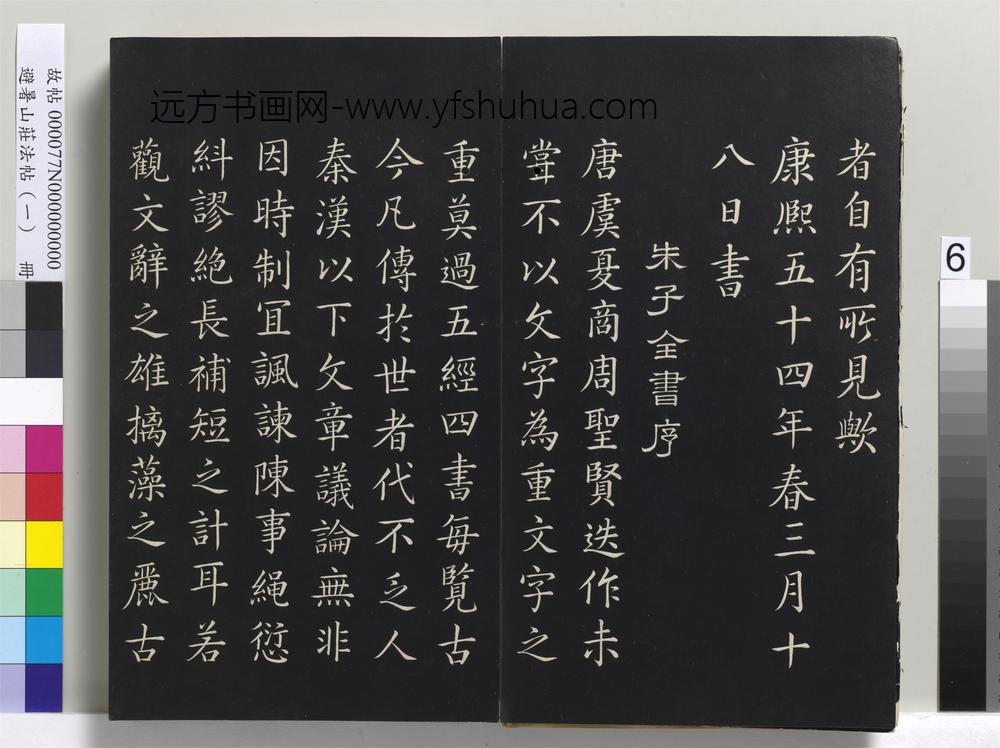 者自有所見歟
康熙五十四年春三月十
八日書
朱子全書序
唐虞夏商周聖賢迭作未
嘗不以文字為重文字之
重莫過五經四書每覽古
今凡傳於世者代不乏人
秦漢以下文章議論無非
因時制宜諷諫陳事繩愆
糾謬絶長補短之計耳若
觀文辭之雄摛藻之麗古
远方书画网-www.yfshuhua.com
故帖 000077N000000000
避暑山莊法帖(一) 冊
6